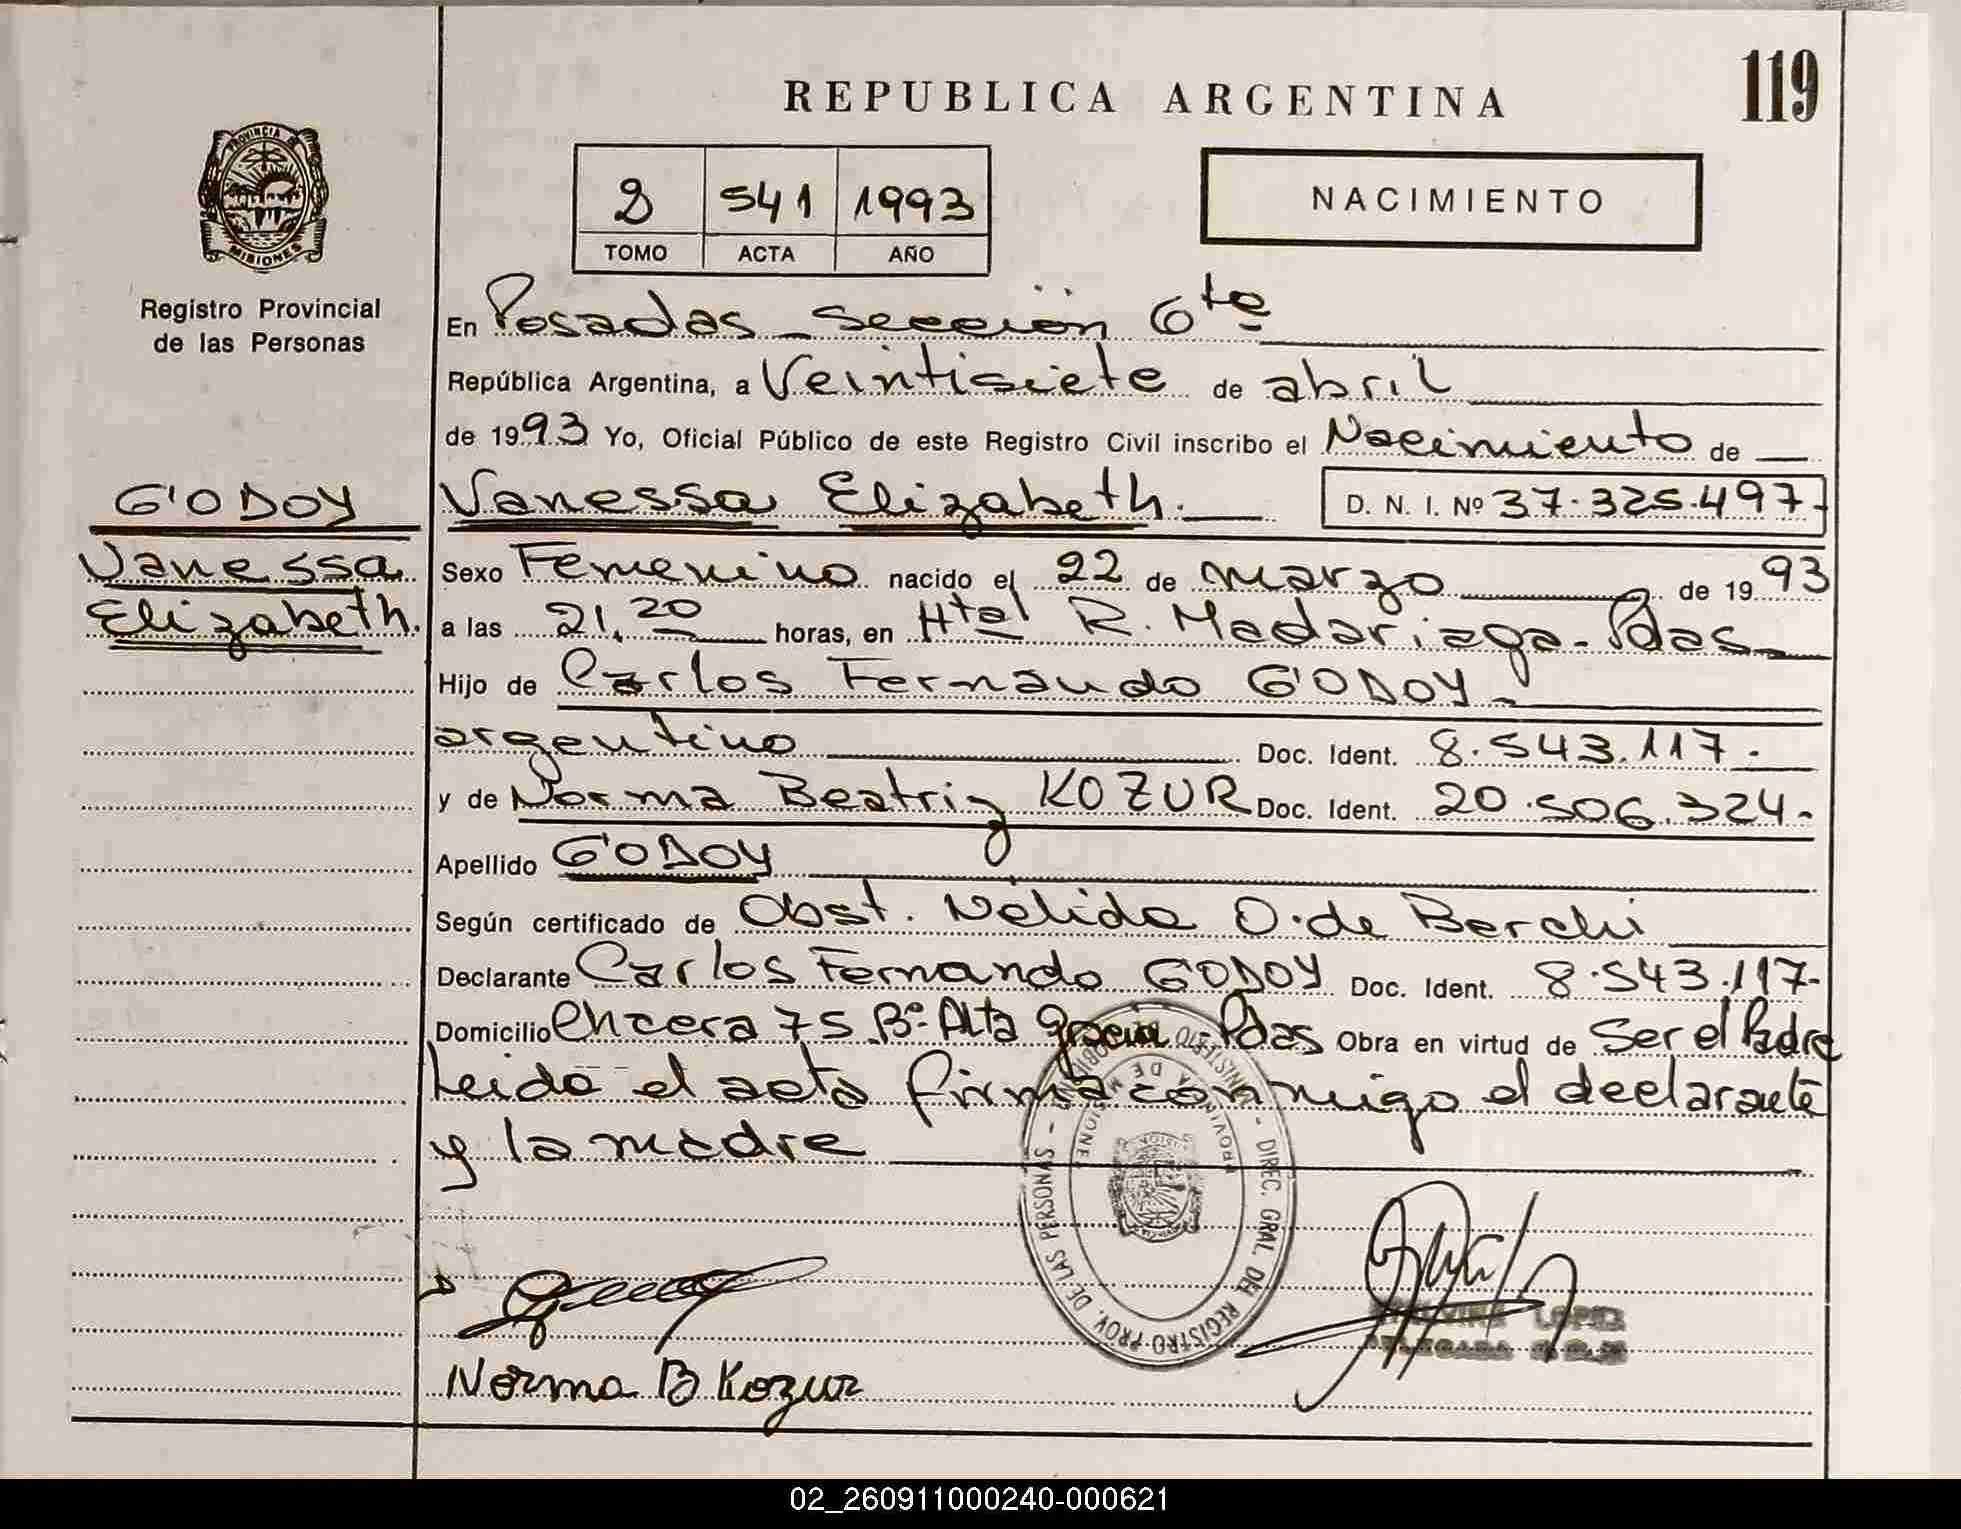 119
REPUBLICA ARGENTINA
PROVINCIA DE
MISIONES
Registro Provincial
de las Personas
2 541 1993
TOMO ACTA AÑO
NACIMIENTO
En Posadas - Sección 6ta
República Argentina, a Veintisiete de abril
de 1993 Yo, Oficial Público de este Registro Civil inscribo el Nacimiento de
GODOY
Vanessa Elizabeth. D. N. I. Nº 37.325.497-
Vanessa
Elizabeth.
Sexo Femenino nacido el 22 de marzo de 1993
a las 21,20 horas, en Htal R. Madariaga - Pdas
Hijo de Carlos Fernando GODOY -
argentino Doc. Ident. 8.543.117.
y de Norma Beatriz KOZUR Doc. Ident. 20.506.324-
Apellido GODOY
Según certificado de Obst. Nélida O. de Berchi
Declarante Carlos Fernando GODOY Doc. Ident. 8.543.117-
Domicilio 75 Bº Alta gracia - Pdas Obra en virtud de Ser el Padre
Leida el acta firma conmigo el declarante
y la madre
PROVINCIA DE MISIONES
DIREC. GRAL. DEL REGISTRO PROV. DE LAS PERSONAS
LOPEZ
Norma B Kozur
02_260911000240-000621